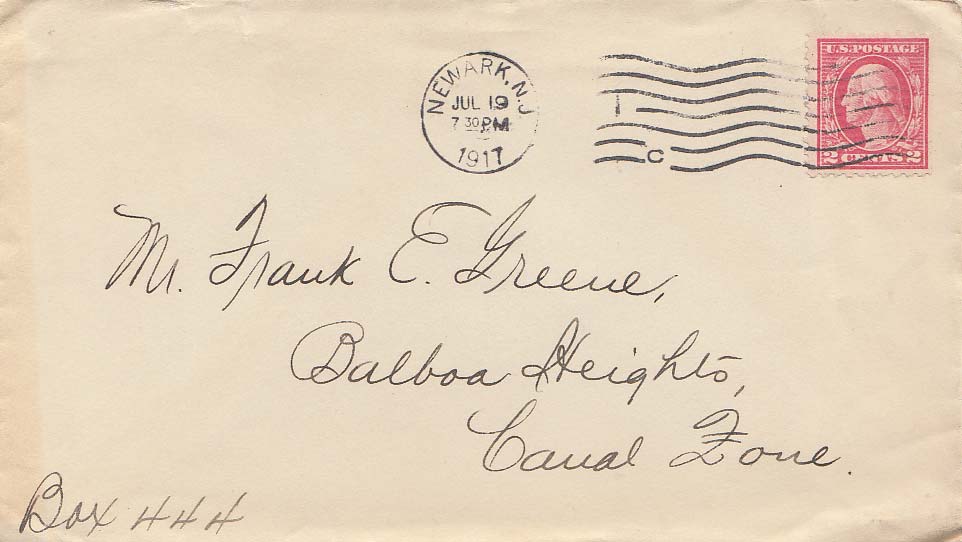 U.S. POSTAGE
2 CENTS 2
NEWARK, N.J.
JUL 19
7 30 PM
1917
C
Mr. Frank E. Greene,
Balboa Heights,
Canal Zone.
Box 444